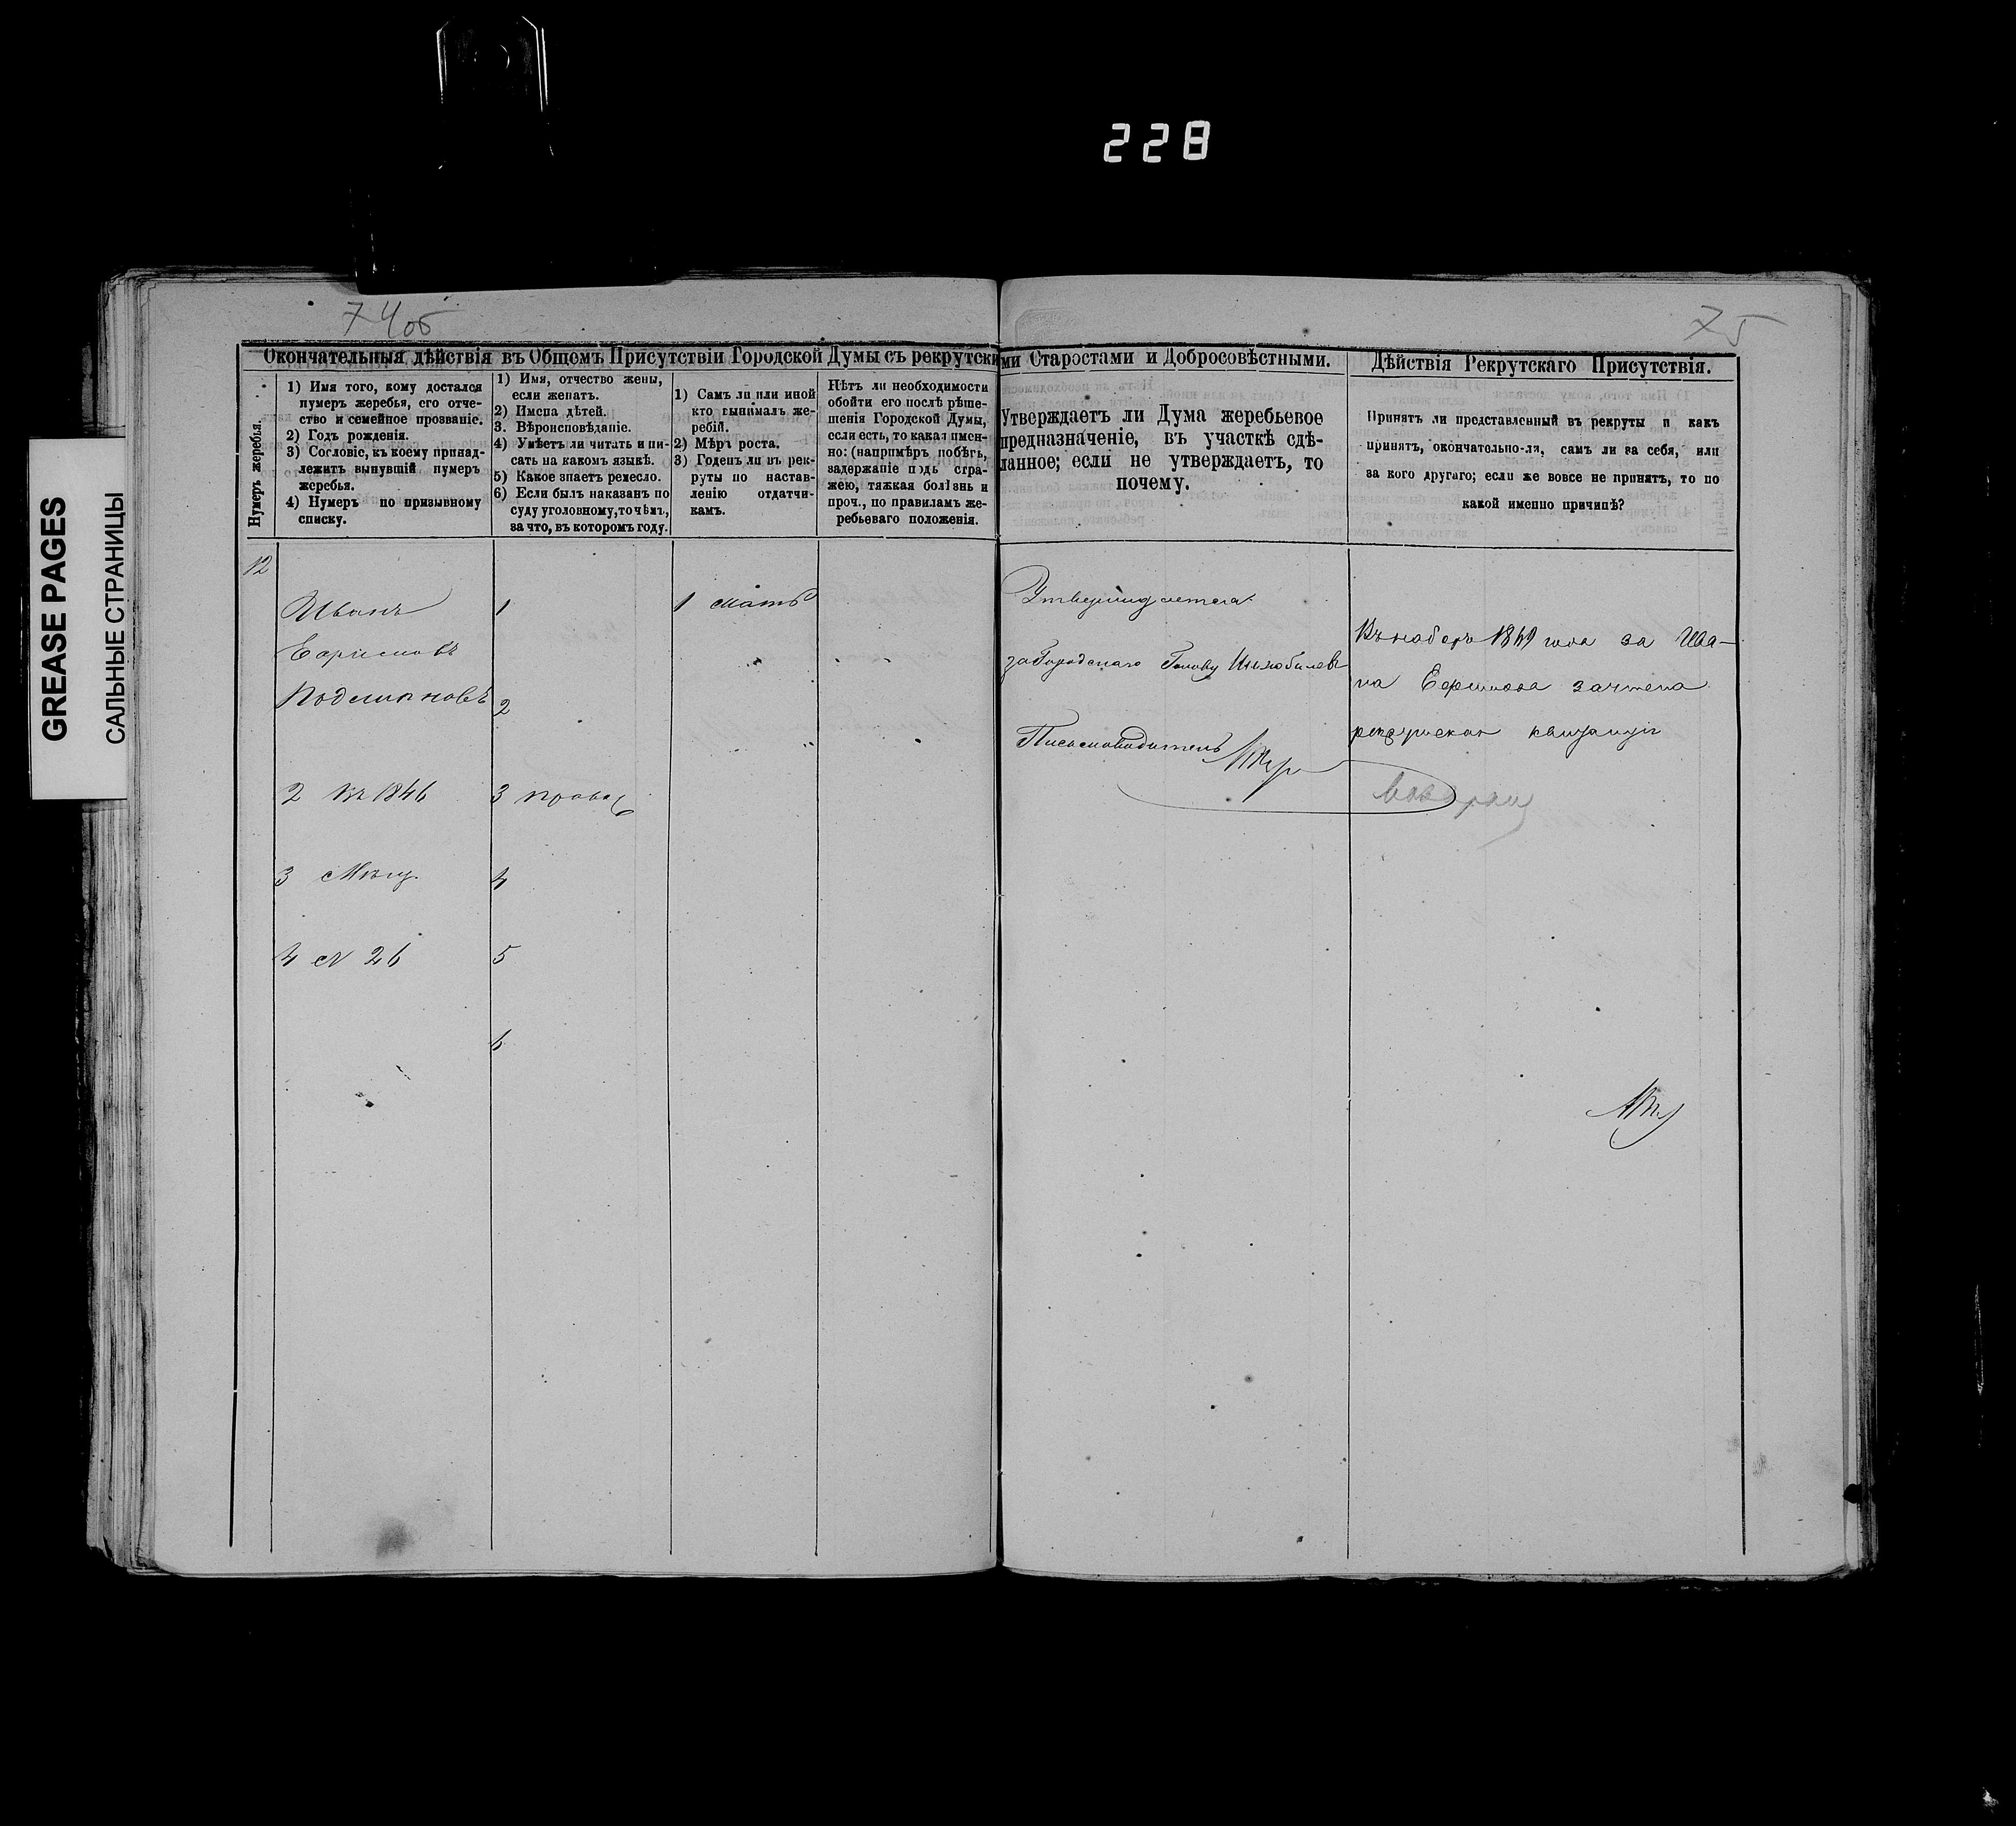 228
GREASE PAGES
САЛЬНЫЕ СТРАНИЦЫ
74об
75
Окончательныя дѣйствія въ Общемъ Присутствіи Городской Думы съ рекрутскими Старостами и Добросовѣстными.
Дѣйствія Рекрутскаго Присутствія.
Нумеръ жеребья.
1) Имя того, кому достался
нумеръ жеребья, его отче-
ство и семейное прозваніе.
2) Годъ рожденія.
3) Сословіе, къ коему принад-
лежитъ вынувшій нумеръ
жеребья.
4) Нумеръ по призывному
списку.
1) Имя, отчество жены,
если женатъ.
2) Имена дѣтей.
3. Вѣроисповѣданіе.
4) Умѣетъ ли читать и пи-
сать на какомъ языкѣ.
5) Какое знаетъ ремесло.
6) Если былъ наказанъ по
суду уголовному, то чѣмъ,
за что, въ которомъ году.
1) Самъ ли или иной
кто вынималъ же-
ребій.
2) Мѣръ роста.
3) Годенъ ли въ рек-
руты по настав-
ленію отдатчи-
камъ.
Нѣтъ ли необходимости
обойти его послѣ рѣше-
шенія Городской Думы,
если есть, то какая имен-
но: (напримѣръ побѣгъ,
задержаніе подъ стра-
жею, тяжкая болѣзнь и
проч., по правиламъ же-
ребьеваго положенія.
Утверждаетъ ли Дума жеребьевое
предназначеніе, въ участкѣ сдѣ-
ланное; если не утверждаетъ, то
почему.
Принятъ ли представленный въ рекруты и какъ
принятъ, окончательно-ли, самъ ли за себя, или
за кого другаго; если же вовсе не принятъ, то по
какой именно причинѣ?
12
Иванъ
2 въ 1846
3 Мѣщ.
4 N 26
1
2
3 правос
4
5
6
1 мать
Утверждается
за Городскаго Голову
Письмоводитель
Въ наборъ 1869 года за Ива-
на зачтена
рекрутская квитанція